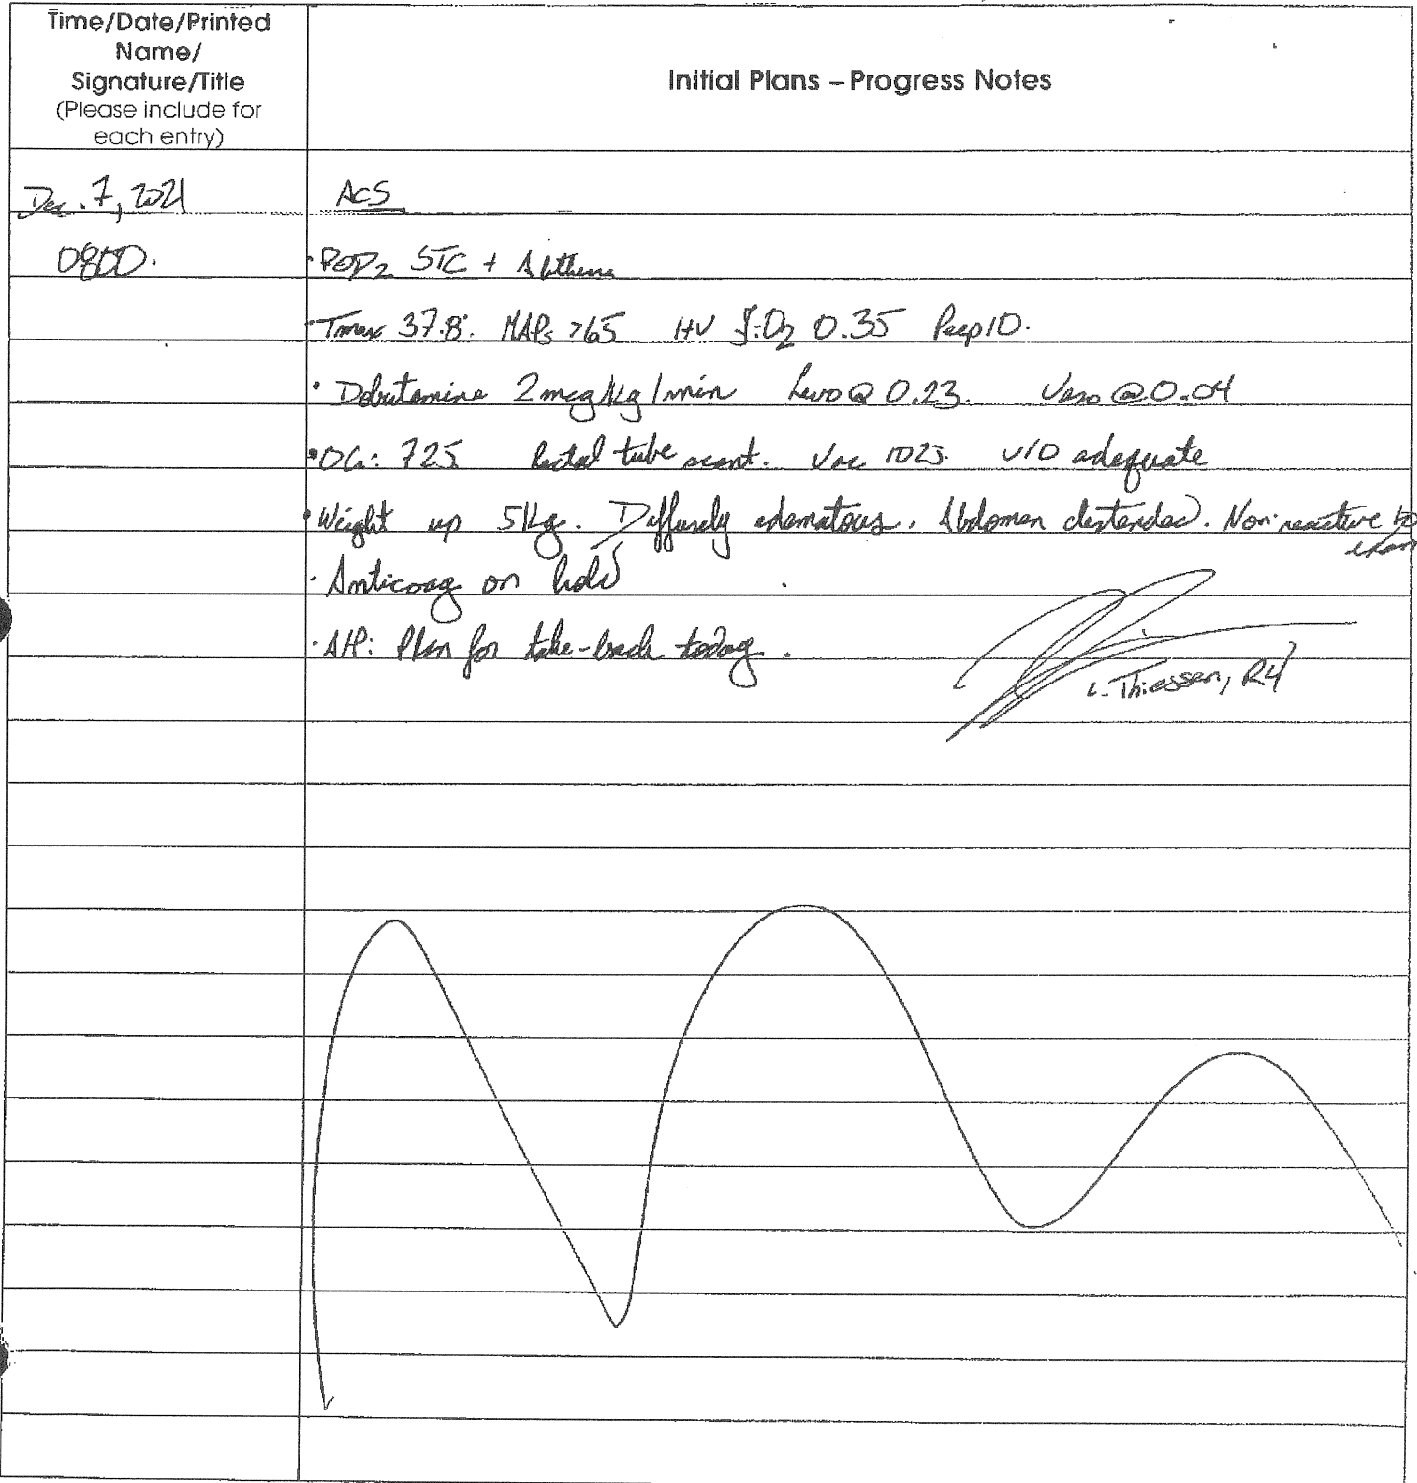 Time/Date/Printed
Name/
Signature/Title
(Please include for
each entry)
Initial Plans – Progress Notes
Dec. 7, 2021
ACS
0800.
· POD2 STC + Abthera
· Tmax 37.8. MAPs >65 HV FiO2 0.35 Peep 10.
· Dobutamine 2 mcg/kg/min Levo @ 0.23. Vaso @ 0.04
· OG: 725 Rectal tube scant. Vac 1025. U/O adequate
· Weight up 51kg. Diffusely edematous. Abdomen distended. Non-reactive to
exam
· Anticoag on hold
· A/P: Plan for take-back today.
L. Thiessen, R4